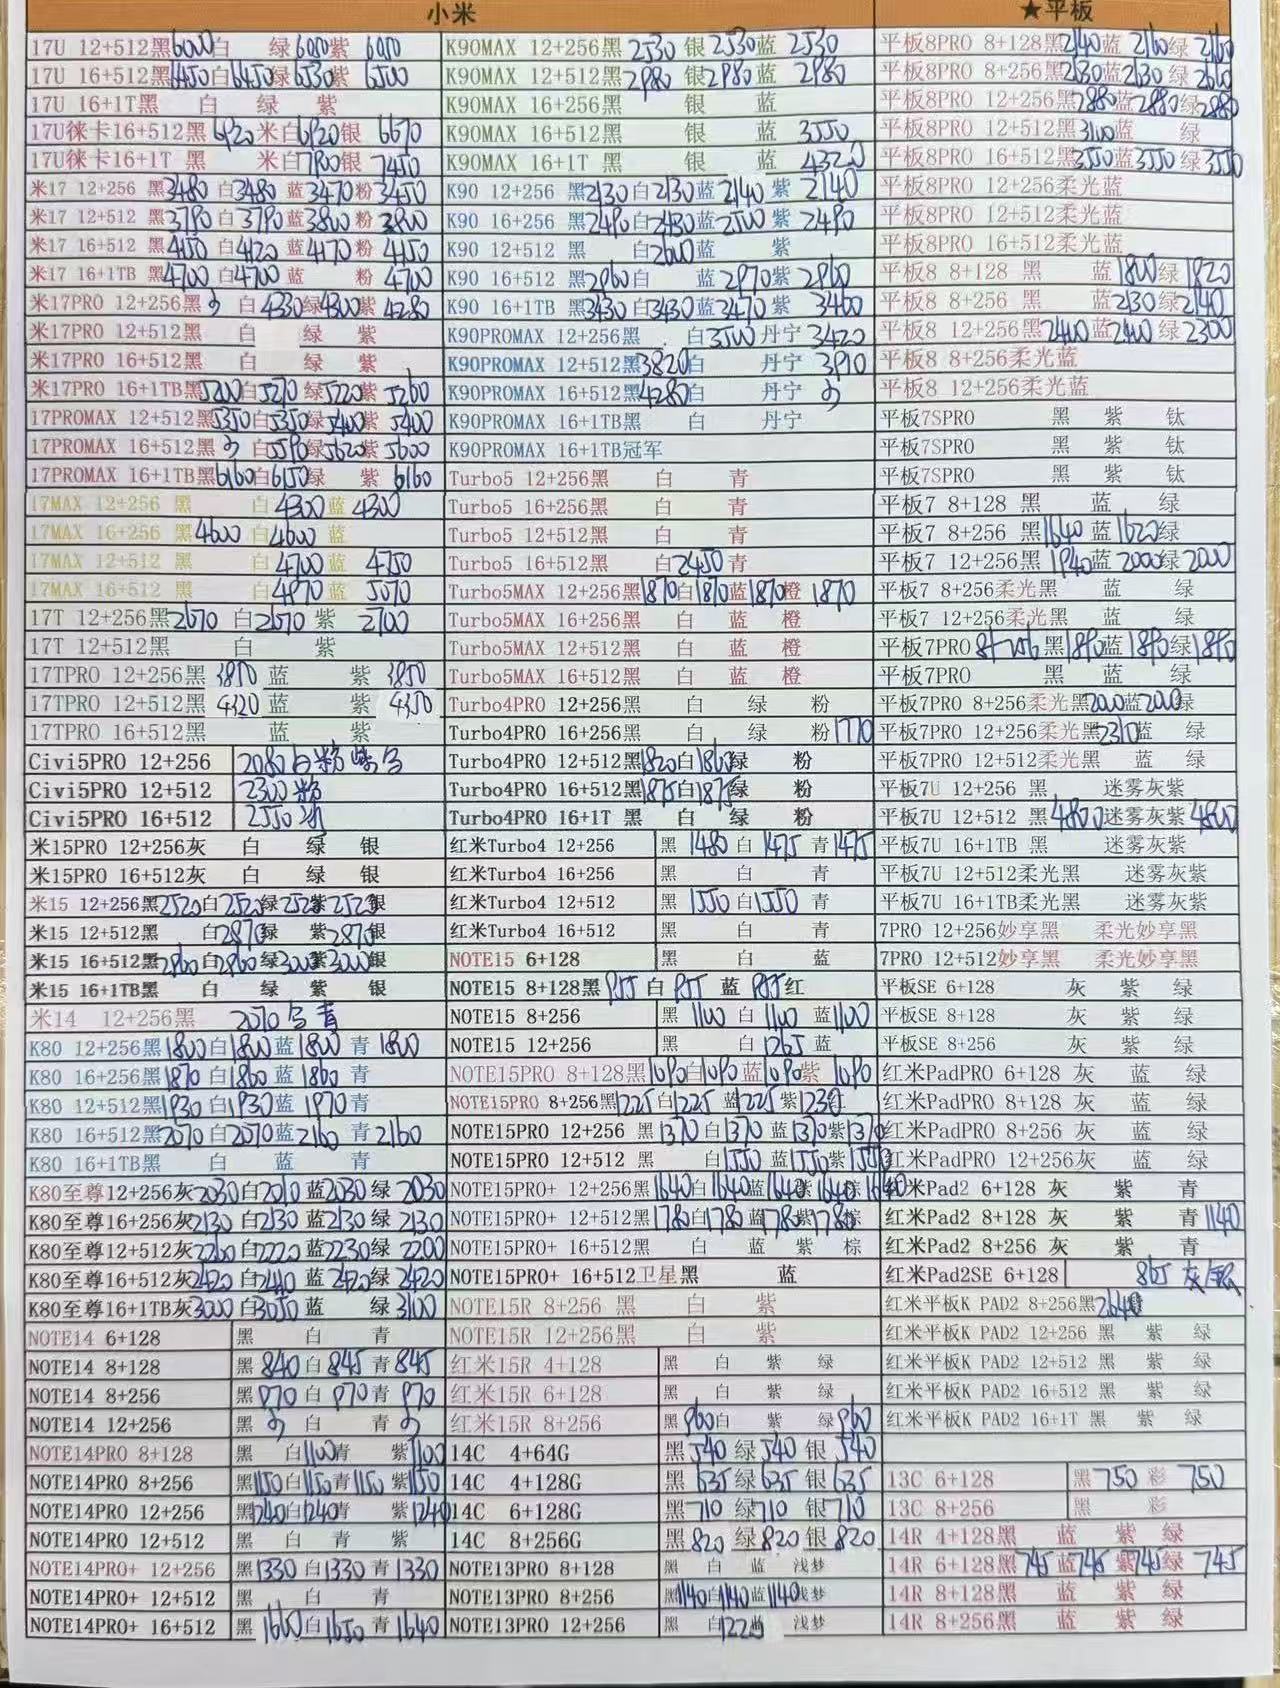 小米
17U 12+512黑6000白 绿6050紫 6050
17U 16+512黑6450白6450绿6530紫 6500
17U 16+1T黑 白 绿 紫
17U徕卡16+512黑 6920 米白6920银 6670
17U徕卡16+1T 黑 米白7900银 7450
米17 12+256 黑3480 白3480 蓝3470粉3450
米17 12+512 黑3790 白3790 蓝3800粉3800
米17 16+512 黑4150 白4120 蓝4170粉4150
米17 16+1TB 黑4700白4700 蓝 粉 4700
米17PRO 12+256黑 白4330绿4300紫 4280
米17PRO 12+512黑 白 绿 紫
米17PRO 16+512黑 白 绿 紫
米17PRO 16+1TB黑5200白5270 绿5220紫 5260
17PROMAX 12+512黑5350白5350绿5400紫 5400
17PROMAX 16+512黑 白5590绿5620紫 5600
17PROMAX 16+1TB黑6160白6150绿 紫 6160
17MAX 12+256 黑 白4300 蓝 4300
17MAX 16+256 黑4600 白4600 蓝
17MAX 12+512 黑 白4700 蓝 4750
17MAX 16+512 黑 白4970 蓝 5070
17T 12+256黑2670 白2670 紫 2700
17T 12+512黑 白 紫
17TPRO 12+256黑 3850 蓝 紫 3850
17TPRO 12+512黑 4320 蓝 紫 4350
17TPRO 16+512黑 蓝 紫
Civi5PRO 12+256 2080白粉紫
Civi5PRO 12+512 2300 粉
Civi5PRO 16+512 2550
米15PRO 12+256灰 白 绿 银
米15PRO 16+512灰 白 绿 银
米15 12+256黑2520白2520绿2520紫2520银
米15 12+512黑 白2870绿 紫2870银
米15 16+512黑2960白2960绿3000紫3000银
米15 16+1TB黑 白 绿 紫 银
米14 12+256黑 2070 青
K80 12+256黑1800白1800蓝1800 青 1800
K80 16+256黑1870 白1860 蓝 1860青
K80 12+512黑1930 白1930蓝 1970青
K80 16+512黑2070 白2070蓝2160 青2160
K80 16+1TB黑 白 蓝 青
K80至尊12+256灰2030白2010 蓝2030 绿 2030
K80至尊16+256灰2130 白2130 蓝2130 绿 2130
K80至尊12+512灰2200 白2220 蓝2230绿 2200
K80至尊16+512灰2420 白2440 蓝2420绿 2420
K80至尊16+1TB灰3000 白3050蓝 绿3100
NOTE14 6+128 黑 白 青
NOTE14 8+128 黑 840白 845青 845
NOTE14 8+256 黑 970 白 970青 970
NOTE14 12+256 黑 白 青
NOTE14PRO 8+128 黑 白1100青 紫1100
NOTE14PRO 8+256 黑1150白1150青1150 紫1150
NOTE14PRO 12+256 黑1240白1240青 紫1240
NOTE14PRO 12+512 黑 白 青 紫
NOTE14PRO+ 12+256 黑1330 白1330 青1330
NOTE14PRO+ 12+512 黑 白 青
NOTE14PRO+ 16+512 黑 1660白1650青 1640
K90MAX 12+256黑 2530 银 2530蓝 2530
K90MAX 12+512黑 2980 银2980蓝 2980
K90MAX 16+256黑 银 蓝
K90MAX 16+512黑 银 蓝 3550
K90MAX 16+1T 黑 银 蓝 4320
K90 12+256 黑2130白2130蓝2140 紫 2140
K90 16+256 黑2490白2430蓝2500 紫 2490
K90 12+512 黑 白2600蓝 紫
K90 16+512 黑2960白 蓝 2970紫 2960
K90 16+1TB 黑3430白3430蓝3470 紫 3400
K90PROMAX 12+256黑 白3500丹宁 3420
K90PROMAX 12+512黑3820白 丹宁 3910
K90PROMAX 16+512黑4280白 丹宁
K90PROMAX 16+1TB黑 白 丹宁
K90PROMAX 16+1TB冠军
Turbo5 12+256黑 白 青
Turbo5 16+256黑 白 青
Turbo5 12+512黑 白 青
Turbo5 16+512黑 白2450青
Turbo5MAX 12+256黑1870白1870蓝1870橙 1870
Turbo5MAX 16+256黑 白 蓝 橙
Turbo5MAX 12+512黑 白 蓝 橙
Turbo5MAX 16+512黑 白 蓝 橙
Turbo4PRO 12+256黑 白 绿 粉
Turbo4PRO 16+256黑 白 绿 粉1770
Turbo4PRO 12+512黑1820白1860绿 粉
Turbo4PRO 16+512黑1875白1875绿 粉
Turbo4PRO 16+1T 黑 白 绿 粉
红米Turbo4 12+256 黑 1480 白 1475 青1475
红米Turbo4 16+256 黑 白 青
红米Turbo4 12+512 黑 1550 白1550 青
红米Turbo4 16+512 黑 白 青
NOTE15 6+128 黑 白 蓝
NOTE15 8+128黑 955 白 955 蓝 955红
NOTE15 8+256 黑 1100 白 1100 蓝1100
NOTE15 12+256 黑 白1265蓝
NOTE15PRO 8+128黑1090白1090蓝1090紫 1090
NOTE15PRO 8+256黑1225白1225 蓝1225 紫1230红
NOTE15PRO 12+256 黑1370白1370 蓝1370紫1370
NOTE15PRO 12+512 黑 白1550 蓝1550紫1550
NOTE15PRO+ 12+256黑1640白1640蓝1640紫1640棕 1640
NOTE15PRO+ 12+512黑1780白1780蓝1780紫1780棕
NOTE15PRO+ 16+512黑 白 蓝 紫 棕
NOTE15PRO+ 16+512卫星黑 蓝
NOTE15R 8+256 黑 白 紫
NOTE15R 12+256黑 白 紫
红米15R 4+128 黑 白 紫 绿
红米15R 6+128 黑 白 紫 绿
红米15R 8+256 黑960白 紫 绿960
14C 4+64G 黑 540 绿540 银 540
14C 4+128G 黑 635绿635 银635
14C 6+128G 黑 710 绿710 银710
14C 8+256G 黑820 绿820银 820
NOTE13PRO 8+128 黑 白 蓝 浅梦
NOTE13PRO 8+256 黑1140白1140蓝1140浅梦
NOTE13PRO 12+256 黑 白1225 浅梦
★平板
平板8PRO 8+128黑2140蓝 2160绿 2160
平板8PRO 8+256黑2630蓝2630 绿 2660
平板8PRO 12+256黑2880蓝2880绿2880
平板8PRO 12+512黑3100蓝 绿
平板8PRO 16+512黑3550蓝3550 绿3550
平板8PRO 12+256柔光蓝
平板8PRO 12+512柔光蓝
平板8PRO 16+512柔光蓝
平板8 8+128 黑 蓝 1800绿 1820
平板8 8+256 黑 蓝2130绿2140
平板8 12+256黑2400蓝2400 绿2300
平板8 8+256柔光蓝
平板8 12+256柔光蓝
平板7SPRO 黑 紫 钛
平板7SPRO 黑 紫 钛
平板7SPRO 黑 紫 钛
平板7 8+128 黑 蓝 绿
平板7 8+256 黑1640 蓝 1620绿
平板7 12+256黑 1940蓝2000绿2000
平板7 8+256柔光黑 蓝 绿
平板7 12+256柔光黑 蓝 绿
平板7PRO 8+256 黑1890蓝1890绿1890
平板7PRO 黑 蓝 绿
平板7PRO 8+256柔光黑2000蓝2000绿
平板7PRO 12+256柔光黑2310蓝 绿
平板7PRO 12+512柔光黑 蓝 绿
平板7U 12+256 黑 迷雾灰紫
平板7U 12+512 黑4800迷雾灰紫4800
平板7U 16+1TB 黑 迷雾灰紫
平板7U 12+512柔光黑 迷雾灰紫
平板7U 16+1TB柔光黑 迷雾灰紫
7PRO 12+256妙享黑 柔光妙享黑
7PRO 12+512妙享黑 柔光妙享黑
平板SE 6+128 灰 紫 绿
平板SE 8+128 灰 紫 绿
平板SE 8+256 灰 紫 绿
红米PadPRO 6+128 灰 蓝 绿
红米PadPRO 8+128 灰 蓝 绿
红米PadPRO 8+256 灰 蓝 绿
红米PadPRO 12+256灰 蓝 绿
红米Pad2 6+128 灰 紫 青
红米Pad2 8+128 灰 紫 青1140
红米Pad2 8+256 灰 紫 青
红米Pad2SE 6+128 865 灰/银
红米平板K PAD2 8+256黑2640
红米平板K PAD2 12+256 黑 紫 绿
红米平板K PAD2 12+512 黑 紫 绿
红米平板K PAD2 16+512 黑 紫 绿
红米平板K PAD2 16+1T 黑 紫 绿
13C 6+128 黑 750 彩 750
13C 8+256 黑 彩
14R 4+128黑 蓝 紫 绿
14R 6+128黑 745 蓝745 紫745绿 745
14R 8+128黑 蓝 紫 绿
14R 8+256黑 蓝 紫 绿